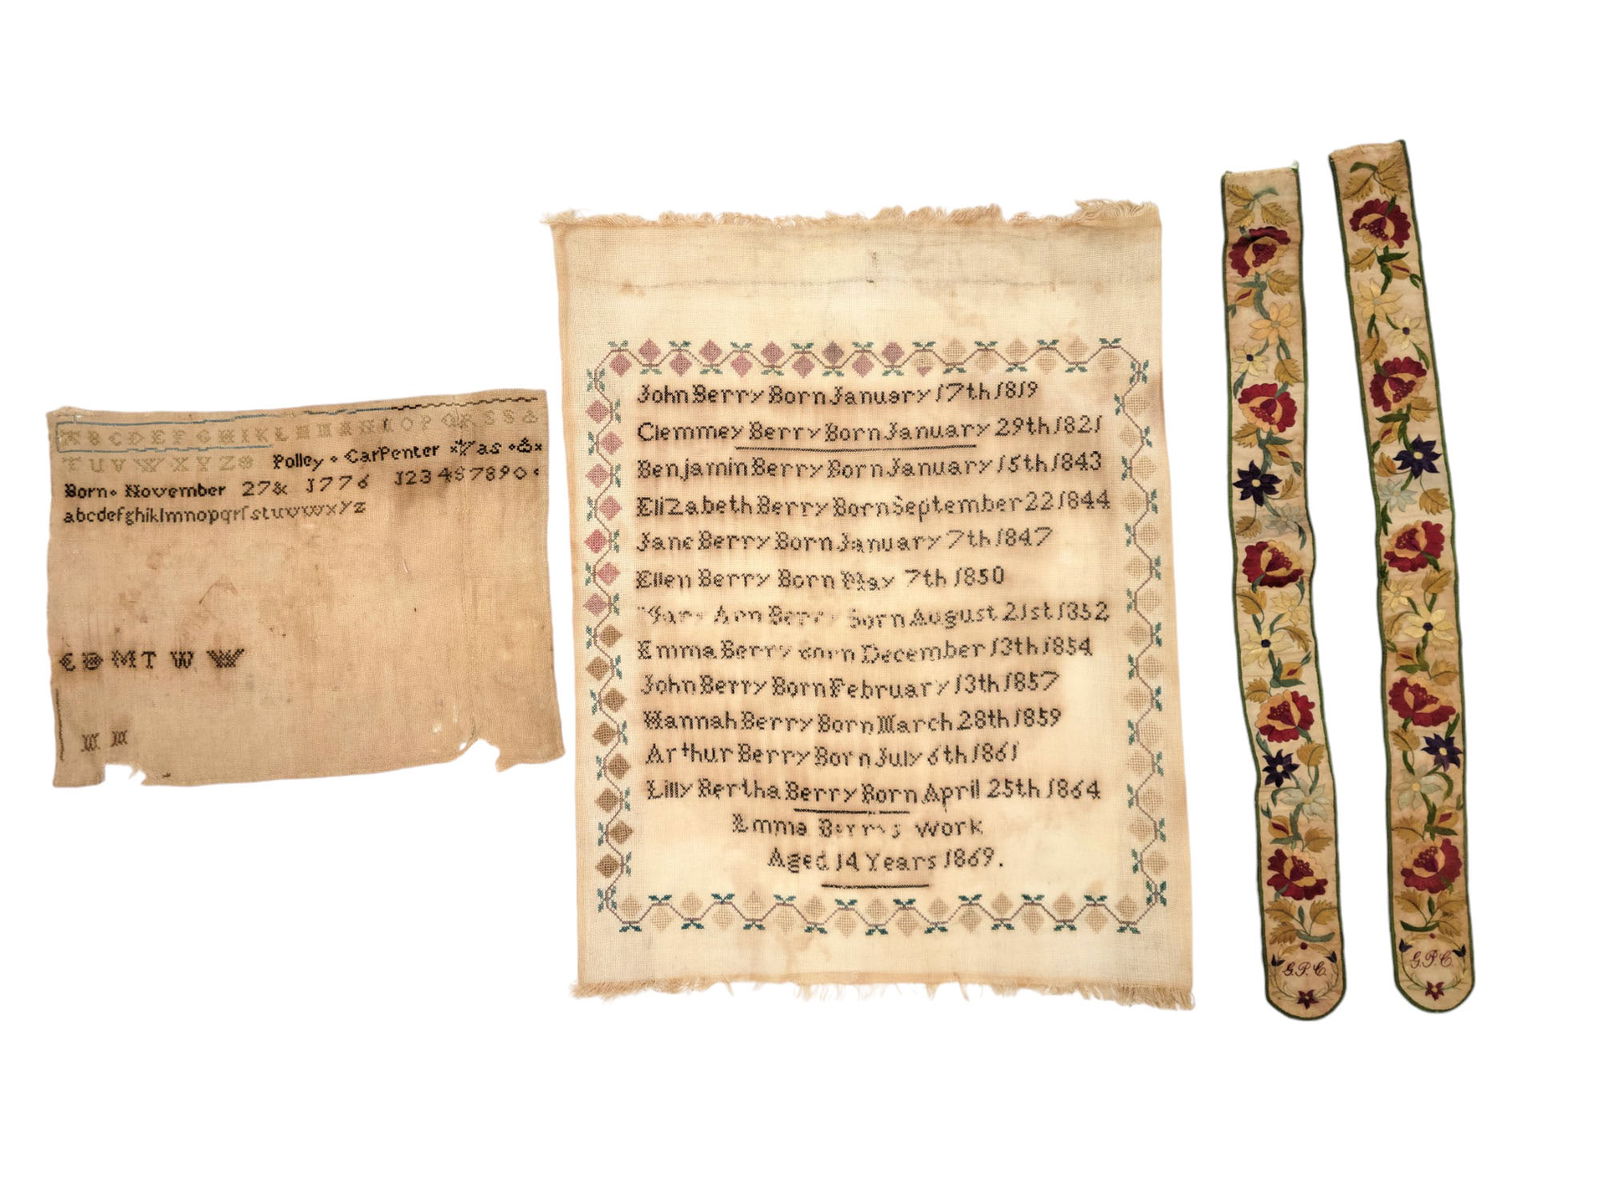 ABCDEFGHIKL
OP
TUVWXYZ& Polley Carpenter Was
Born November 27& 1776 123457890
abcdefghiklmnopqrſstuvwxyz
C D M T W W
John Berry Born January 17th 1819
Clemmey Berry Born January 29th 1821
Benjamin Berry Born January 15th 1843
Elizabeth Berry Born September 22 1844
Jane Berry Born January 7th 1847
Ellen Berry Born May 7th 1850
Mary Ann Berry Born August 21st 1852
Emma Berry Born December 13th 1854
John Berry Born February 13th 1857
Hannah Berry Born March 28th 1859
Arthur Berry Born July 6th 1861
Lilly Bertha Berry Born April 25th 1864
Emma Berrys Work
Aged 14 Years 1869.
G.P.C.
G.P.C.